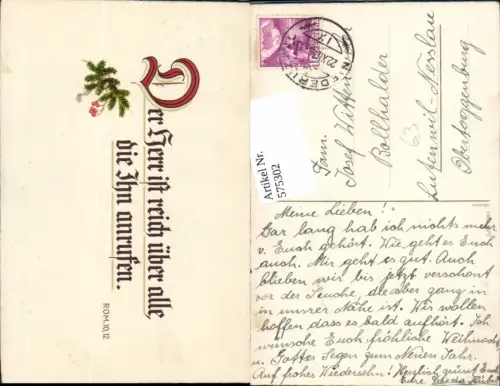 Der Herr ist reich über alle
die Ihn anrufen.
RÖM.10.12
Artikel Nr.
575302
Fam.
Josef
Bollhalder
Lutenwil-Nesslau
Obertoggenburg
Meine Lieben!
Gar lang hab ich nichts mehr
v. Euch gehört. Wie geht es Euch
auch. Mir geht es gut. Auch
blieben wir bis jetzt verschont
vor der Seuche, die aber ganz in
in unsrer Nähe ist. Wir wollen
hoffen dass es bald aufhört. Ich
wünsche Euch fröhliche Weihnacht
u. Gottes Segen zum Neuen Jahr.
Auf frohes Wiedersehn! Herzlich grüsst Euch
Eure